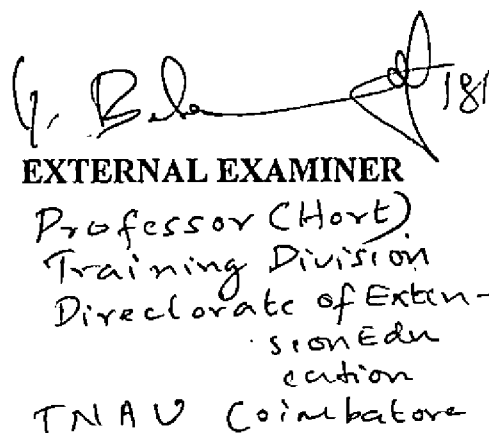 181
EXTERNAL EXAMINER
Professor (Hort)
Training Division
Directorate of Exten-
sion Edu
cation
TNAU Coimbatore